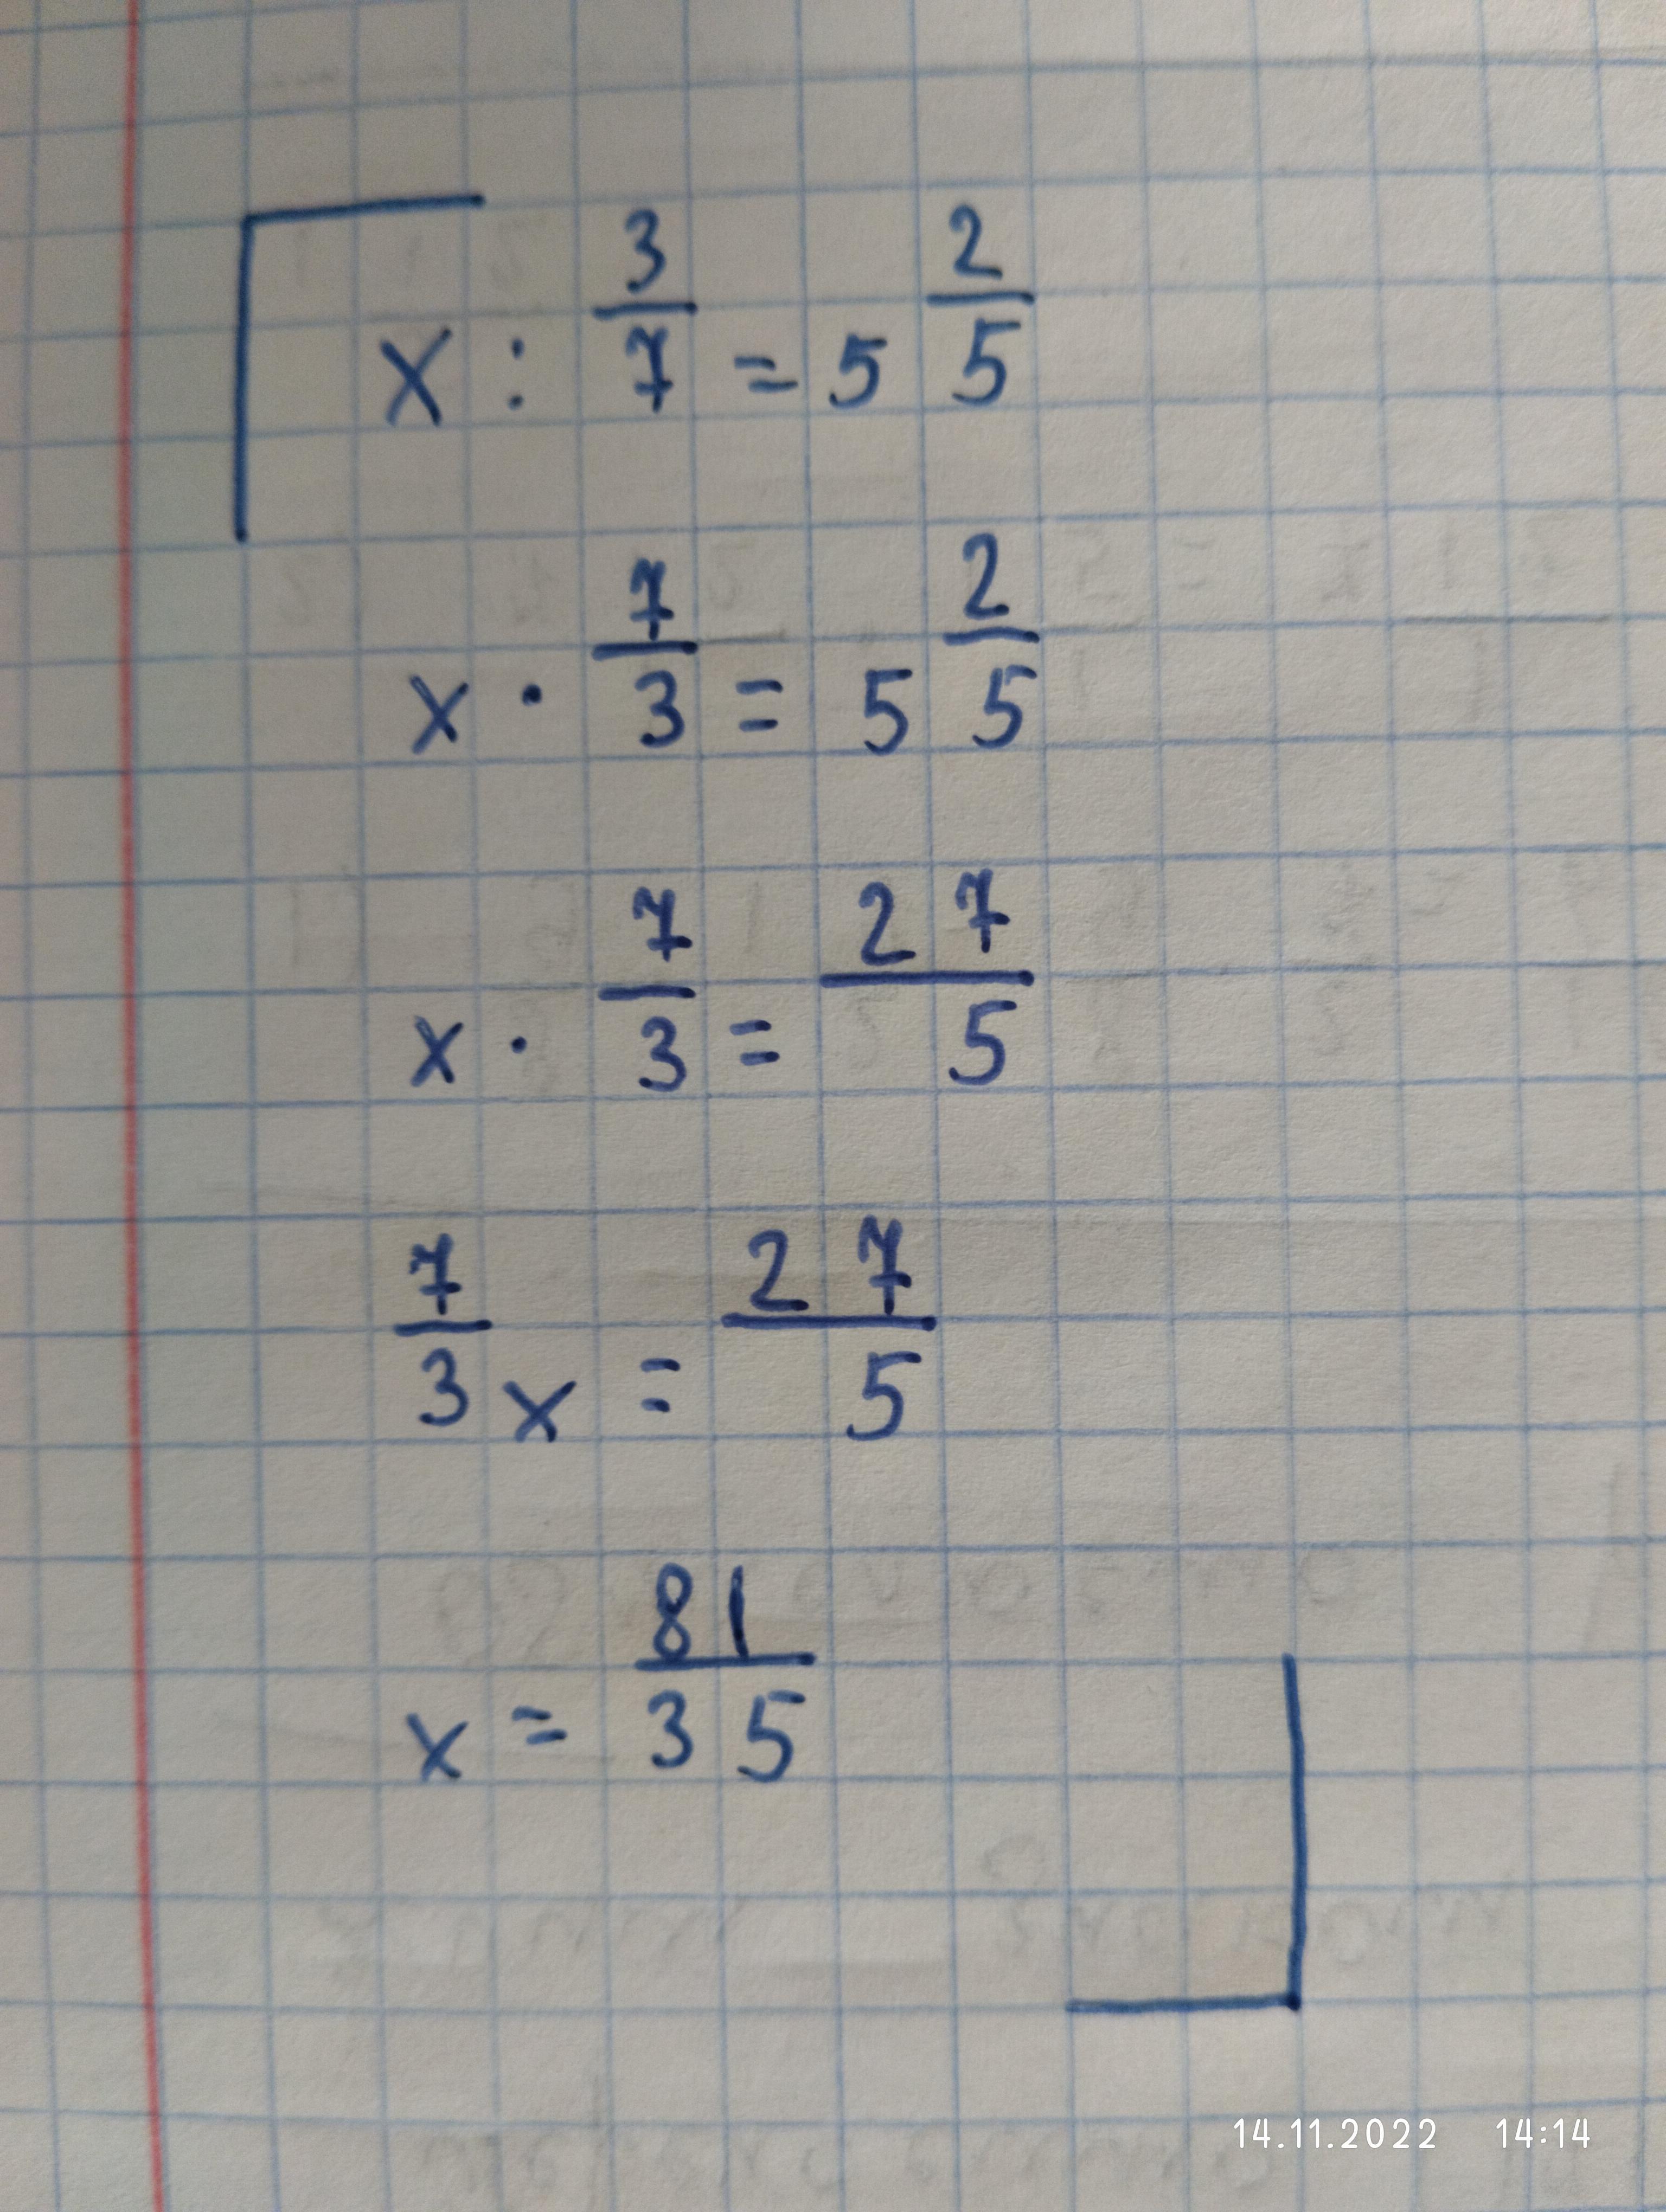 x : 3/7 = 5 2/5
x · 7/3 = 5 2/5
x · 7/3 = 27/5
7/3 x = 27/5
x = 81/35
14.11.2022 14:14